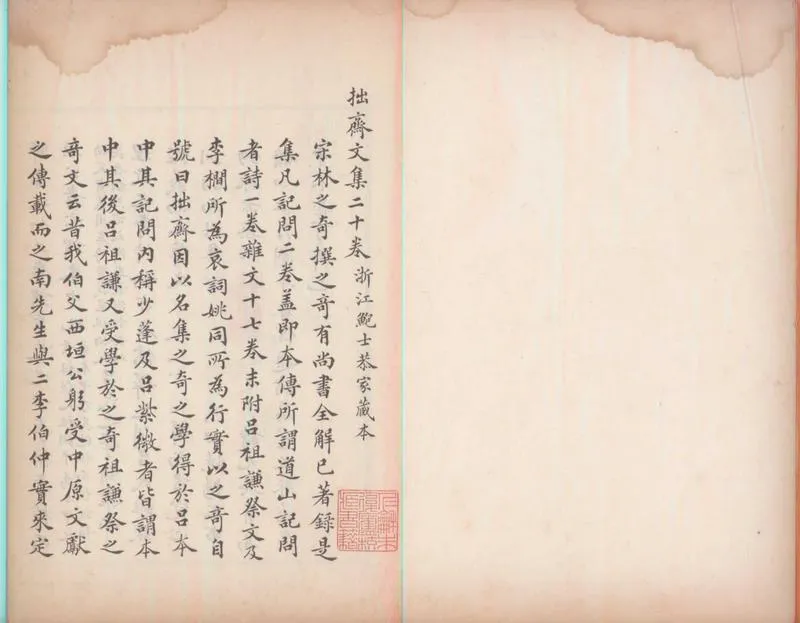 拙齋文集二十卷浙江鮑士恭家藏本
宋林之奇撰之奇有尚書全解已著錄是
集凡記問二卷蓋即本傳所謂道山記問
者詩一卷雜文十七卷末附呂祖謙祭文及
李櫚所為哀詞姚同所為行實以之奇自
號曰拙齋因以名集之奇之學得於呂本
中其記問內稱少蓬及呂紫微者皆謂本
中其後呂祖謙又受學於之奇祖謙祭之
奇文云昔我伯父西垣公躬受中原文獻
之傳載而之南先生與二李伯仲實來定